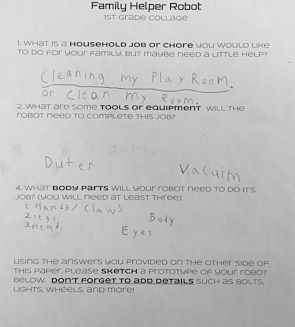 Family Helper Robot
1ST GRADE COLLAGE
1. WHAT IS A HOUSEHOLD JOB OR CHORE YOU WOULD LIKE
TO DO FOR YOUR FAMILY, BUT MAYBE NEED A LITTLE HELP?
Cleaning my Play Room.
or clean my Room.
2. WHAT ARE SOME TOOLS OR EQUIPMENT WILL THE
ROBOT NEED TO COMPLETE THIS JOB?
Duter Vacuim
4. WHAT BODY PARTS WILL YOUR ROBOT NEED TO DO ITS
JOB? (YOU WILL NEED AT LEAST THREE)
1. Hands/ Claws
2. legs Body
3. Head Eyes
USING THE ANSWERS YOU PROVIDED ON THE OTHER SIDE OF
THIS PAPER, PLEASE SKETCH A PROTOTYPE OF YOUR ROBOT
BELOW. DON'T FORGET TO ADD DETAILS SUCH AS BOLTS,
LIGHTS, WHEELS, AND MORE!